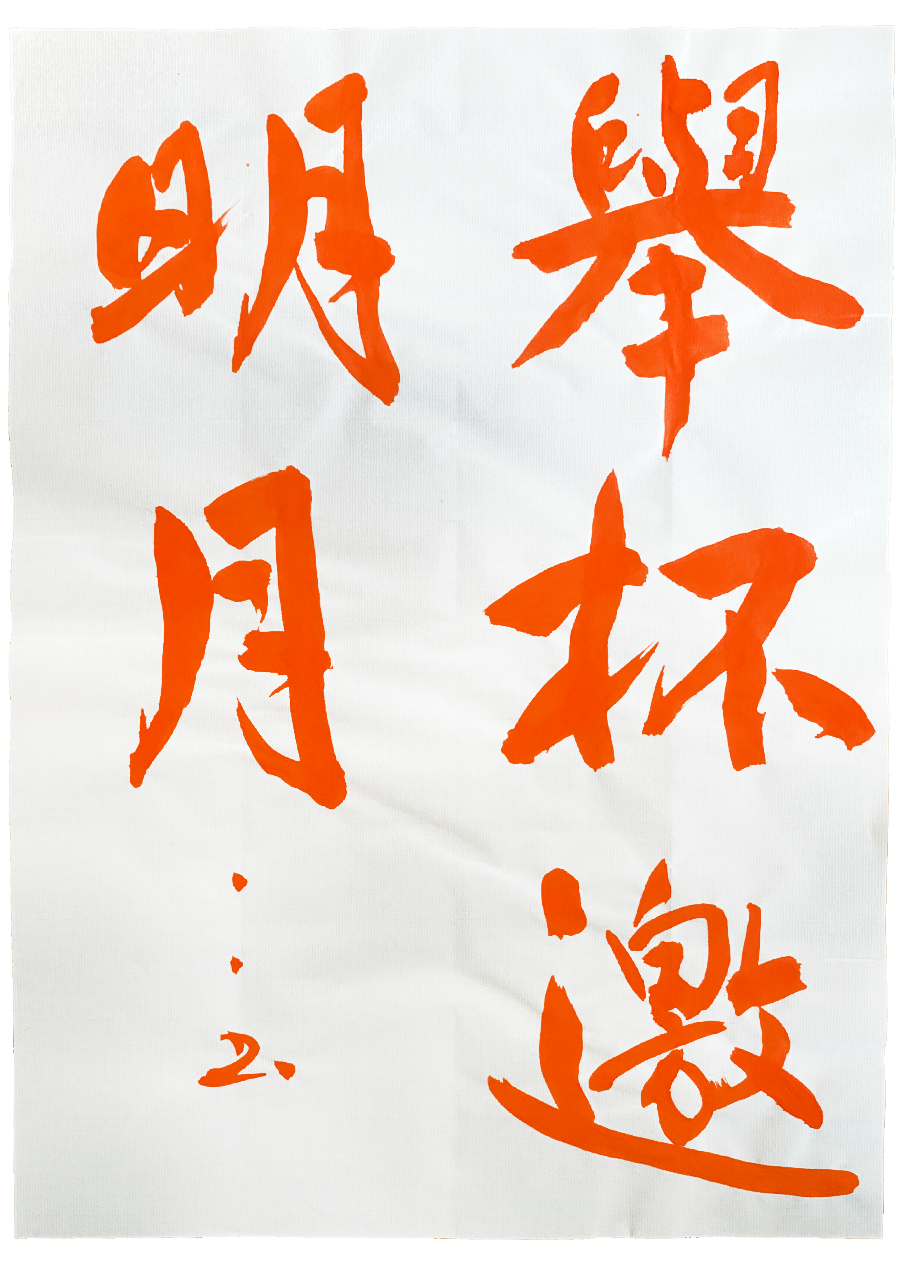 舉杯邀
明月